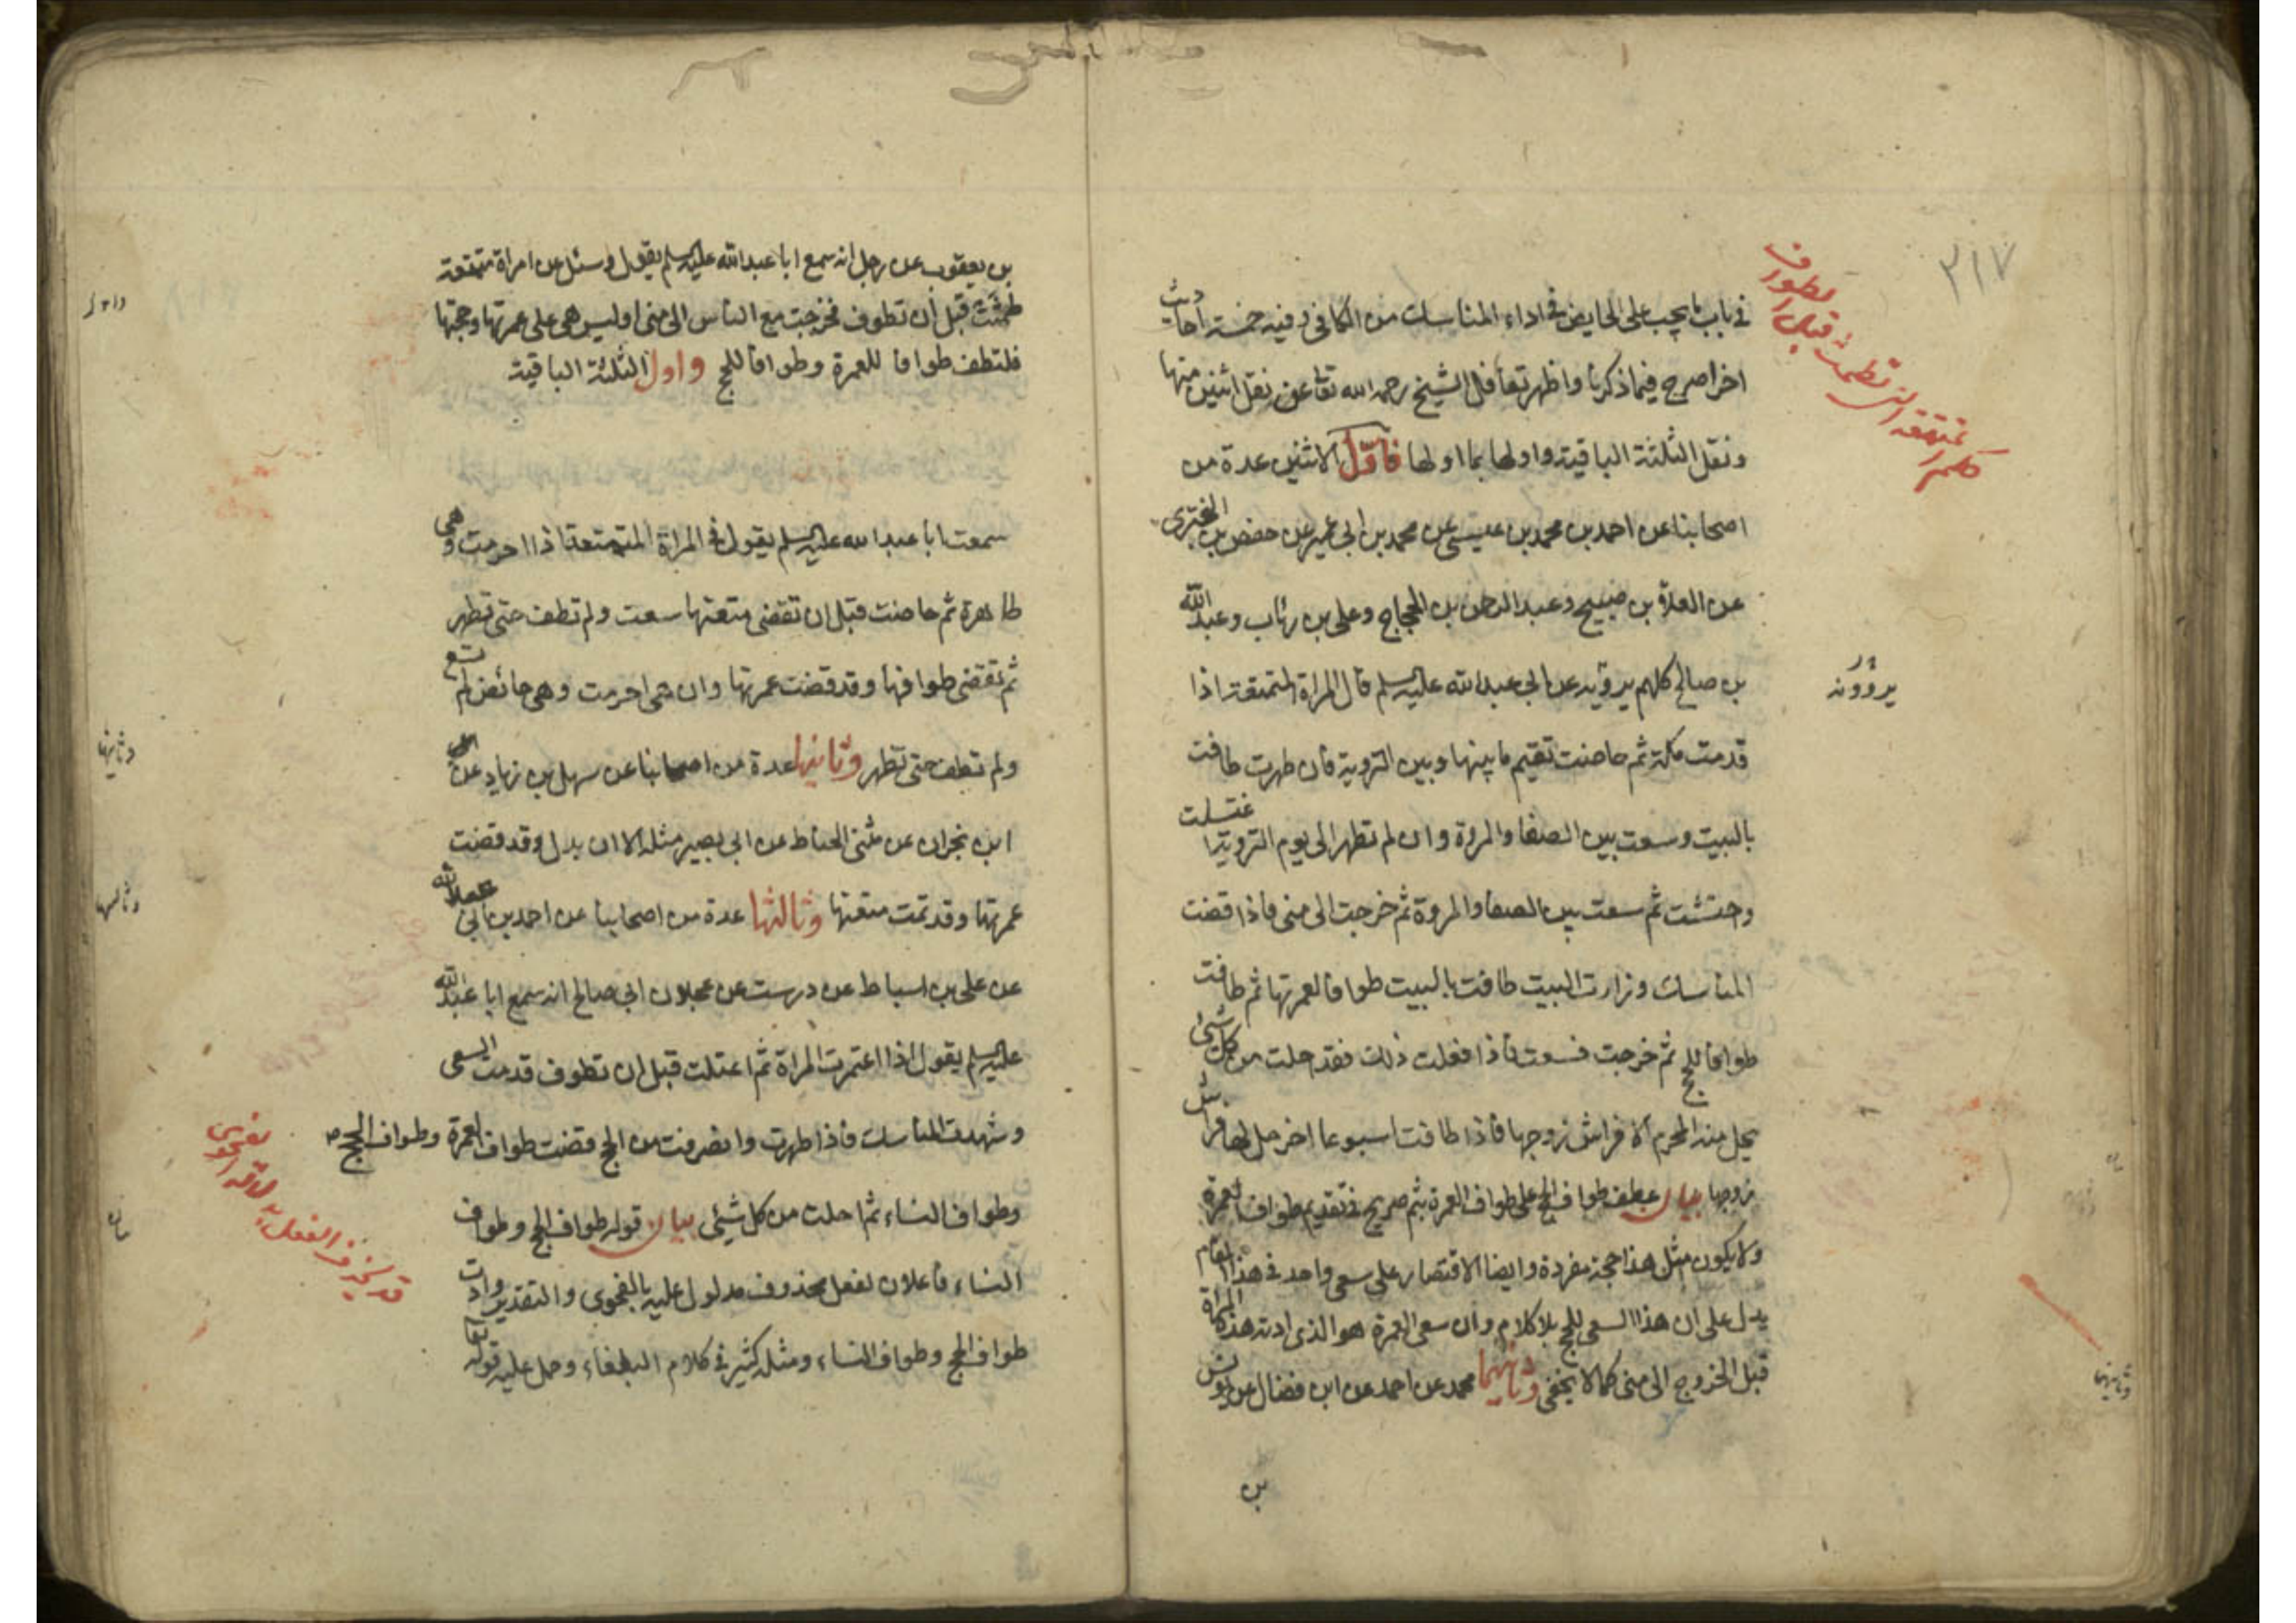 ٢١٧
في باب ما يجب على الحايض في اداء المناسك من الكافي وفيه خمسة احاديث
اخر اصرح فيما ذكرنا واظهر تغافل الشيخ رحمه الله تعا عن نقل اثنين منها
ونقل الثلثة الباقية واولها بما اولها فاول الاثنين عدة من
اصحابنا عن احمد بن محمد بن عيسى عن محمد بن ابي عمير عن حفص بن البختري
عن العلاء بن صبيح وعبد الرحمن بن الحجاج وعلى بن رئاب وعبد الله
بن صالح كلهم يرويه عن ابي عبد الله عليه السلم قال المراة المتمتعة اذا
يروونه
قدمت مكة ثم حاضت تقيم ما بينها وبين التروية فان طهرت طافت
بالبيت وسعت بين الصفا والمروة وان لم تطهر الى يوم التروية اغتسلت
واحتشت ثم سعت بين الصفا والمروة ثم خرجت الى منى فاذا قضت
المناسك وزارت البيت طافت بالبيت طوافا لعمرتها ثم طافت
طوافا للحج ثم خرجت فسعت فاذا فعلت ذلك فقد احلت من كل شئ
يحل منه المحرم الا فراش زوجها فاذا طافت اسبوعا اخر حل لها فراش
زوجها بيان عطف طواف الحج على طواف العمرة بثم صريح في تقديم طواف العمرة
ولا يكون مثل هذا حجة مفردة وايضا الاقتصار على سعى واحد في هذا المقام
يدل على ان هذا السعى للحج بلا كلام وان سعى العمرة هو الذى ادته هذه المراة
قبل الخروج الى منى كما لا يخفى وثانيهما محمد عن احمد عن ابن فضال عن يونس
وثانيهما
بن
حكم المتمتعة التي تطمث قبل الطواف
بن يعقوب عن رجل انه سمع ابا عبد الله عليه السلم يقول وسئل عن امراة متمتعة
طمثت قبل ان تطوف فخرجت مع الناس الى منى اوليس هى على عمرتها وحجتها
فلتطف طوافا للعمرة وطوافا للحج واول الثلثة الباقية
سمعت ابا عبد الله عليه السلم يقول في المراة المتمتعة اذا احرمت وهى
طاهرة ثم حاضت قبل ان تقضى متعتها سعت ولم تطف حتى تطهر
ثم تقضى طوافها وقد قضت عمرتها وان هى احرمت وهى حائض لم تسع
ولم تطف حتى تطهر وثانيها عدة من اصحابنا عن سهل بن زياد عن
وثانيها
ابن نجران عن مثنى الحناط عن ابي بصير مثله الا ان بدل وقد قضت
عمرتها وقد تمت متعتها وثالثها عدة من اصحابنا عن احمد بن ابي عبد الله
وثالثها
عن على بن اسباط عن درست عن عجلان ابي صالح انه سمع ابا عبد الله
عليه السلم يقول اذا اعتمرت المراة ثم اعتلت قبل ان تطوف قدمت السعى
وشهدت المناسك فاذا طهرت وانصرفت من الحج قضت طواف العمرة وطواف الحج
وطواف النساء ثم احلت من كل شيئى بيان قوله طواف الحج وطواف
بيان
النساء فاعلان لفعل محذوف مدلول عليه بالفحوى والتقدير وادت
طواف الحج وطواف النساء ومثله كثير في كلام البلغاء وحمل عليه قوله تعا
قد يحذف الفعل